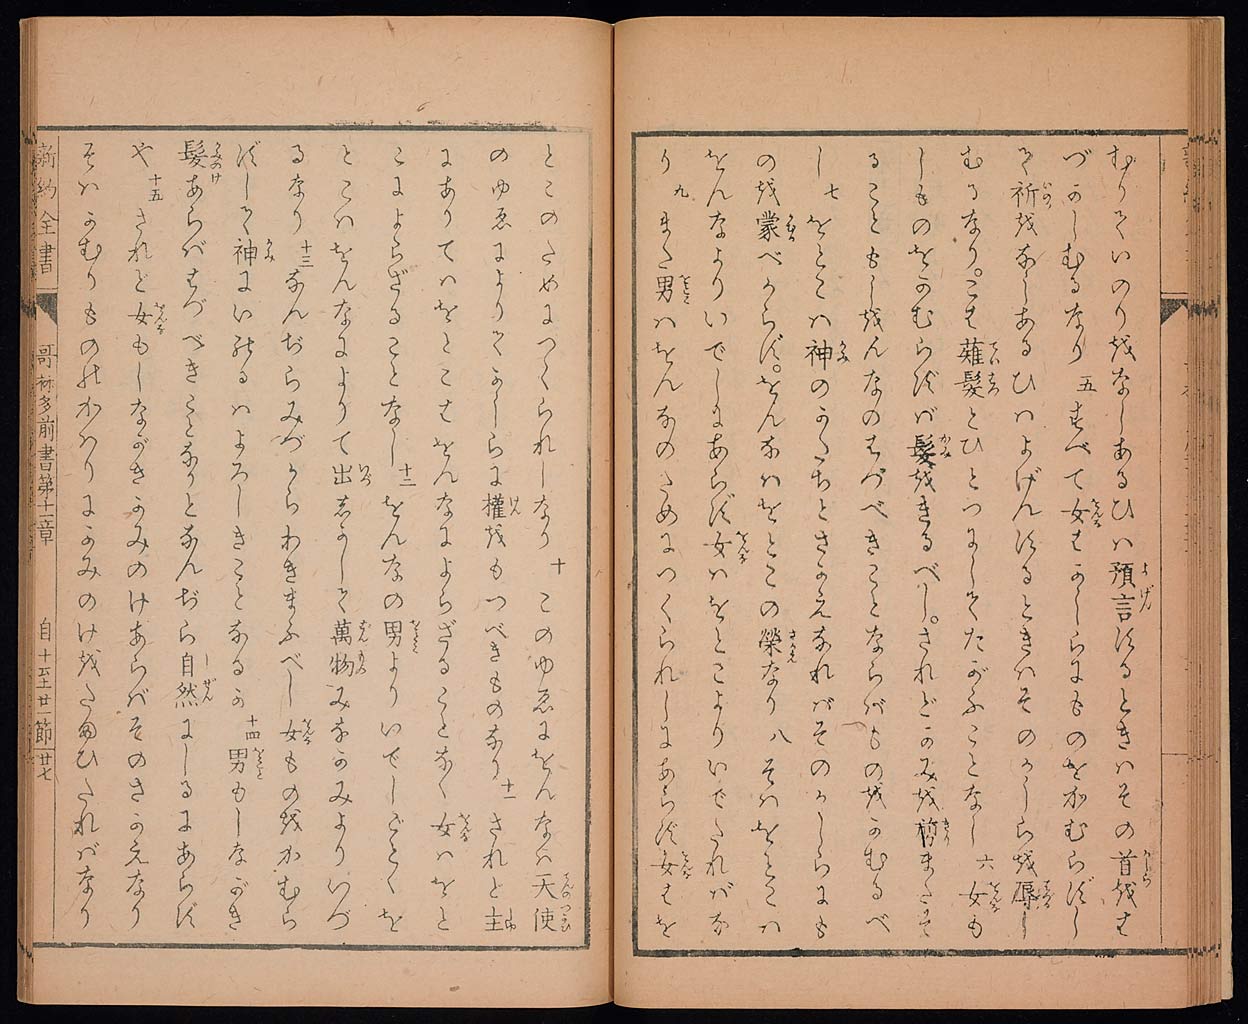 むりていのり越なしあるひハ預言するときハその首越は
づかしむるなり 五 すべて女はかしらにものをかむらずし
て祈越なしあるひハよげんするときハそのかしら越辱し
むるなり。こは薙髪とひとつにしてたがふことなし 六 女も
しものをかむらずバ髪越きるべし。されどかみ越剪またそ
ることもし越んなのはづべきことならバもの越かむるべ
し 七 をとこハ神のかたちとさかえなればそのかしらにも
の越蒙べからず。をんなハをとこの榮なり 八 そハをとこハ
をんなよりいでしにあらず女ハをとこよりいでたればな
り 九 また男ハをんなのためにつくられしにあらず女はを
とこのためにつくられしなり 十 このゆゑにをんなハ天使
のゆゑによりてかしらに權越もつべきものなり 十一 されど主
にありてハをとこはをんなによらざることなく女ハをと
こによらざることなし 十二 をんなの男よりいでしごとくを
とこハをんなによりて出しかして萬物みなかみよりいづ
るなり 十三 なんぢらみづからわきまふべし女もの越かむら
ずして神にいのるハよろしきことなるか 十四 男もしながき
髪あらバはづべきことなりとなんぢら自然にしるにあらず
や 十五 されど女もしながきかみのけあらバそのさかえなり
そハかむりもののかハりにかみのけ越たまひたればなり
新約全書
哥林多前書第十一章
自十至廿一節
廿七